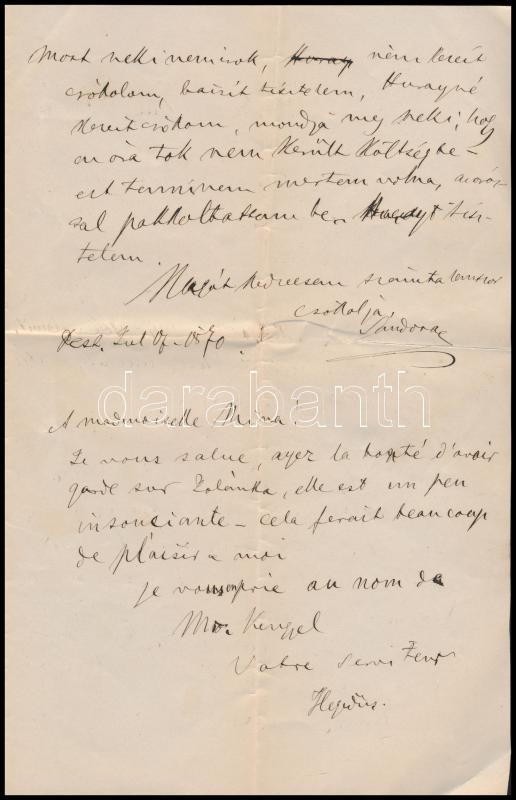 Most neki nem irok, nem
csókolom, bátyát tisztelem, Hurayné
kezeit csókom, mondja meg neki, hogy
óra tok nem került költségbe –
ezt mertem volna,
pakkolhattam be. tisz-
telem.
Magát kedvesen számtalanszor
csókolja
Sándora
Pest. Jul 1870.
darabanth
A madmoiselle Mina!
Je vous salue, ayez la bonté d'avoir
garde sur Zolánka, elle est un peu
insousiante – cela ferait beaucoup
de plaisir a moi
je vous prie au nom de
Mr. Kengel
Votre serviteur
Hegedüs.